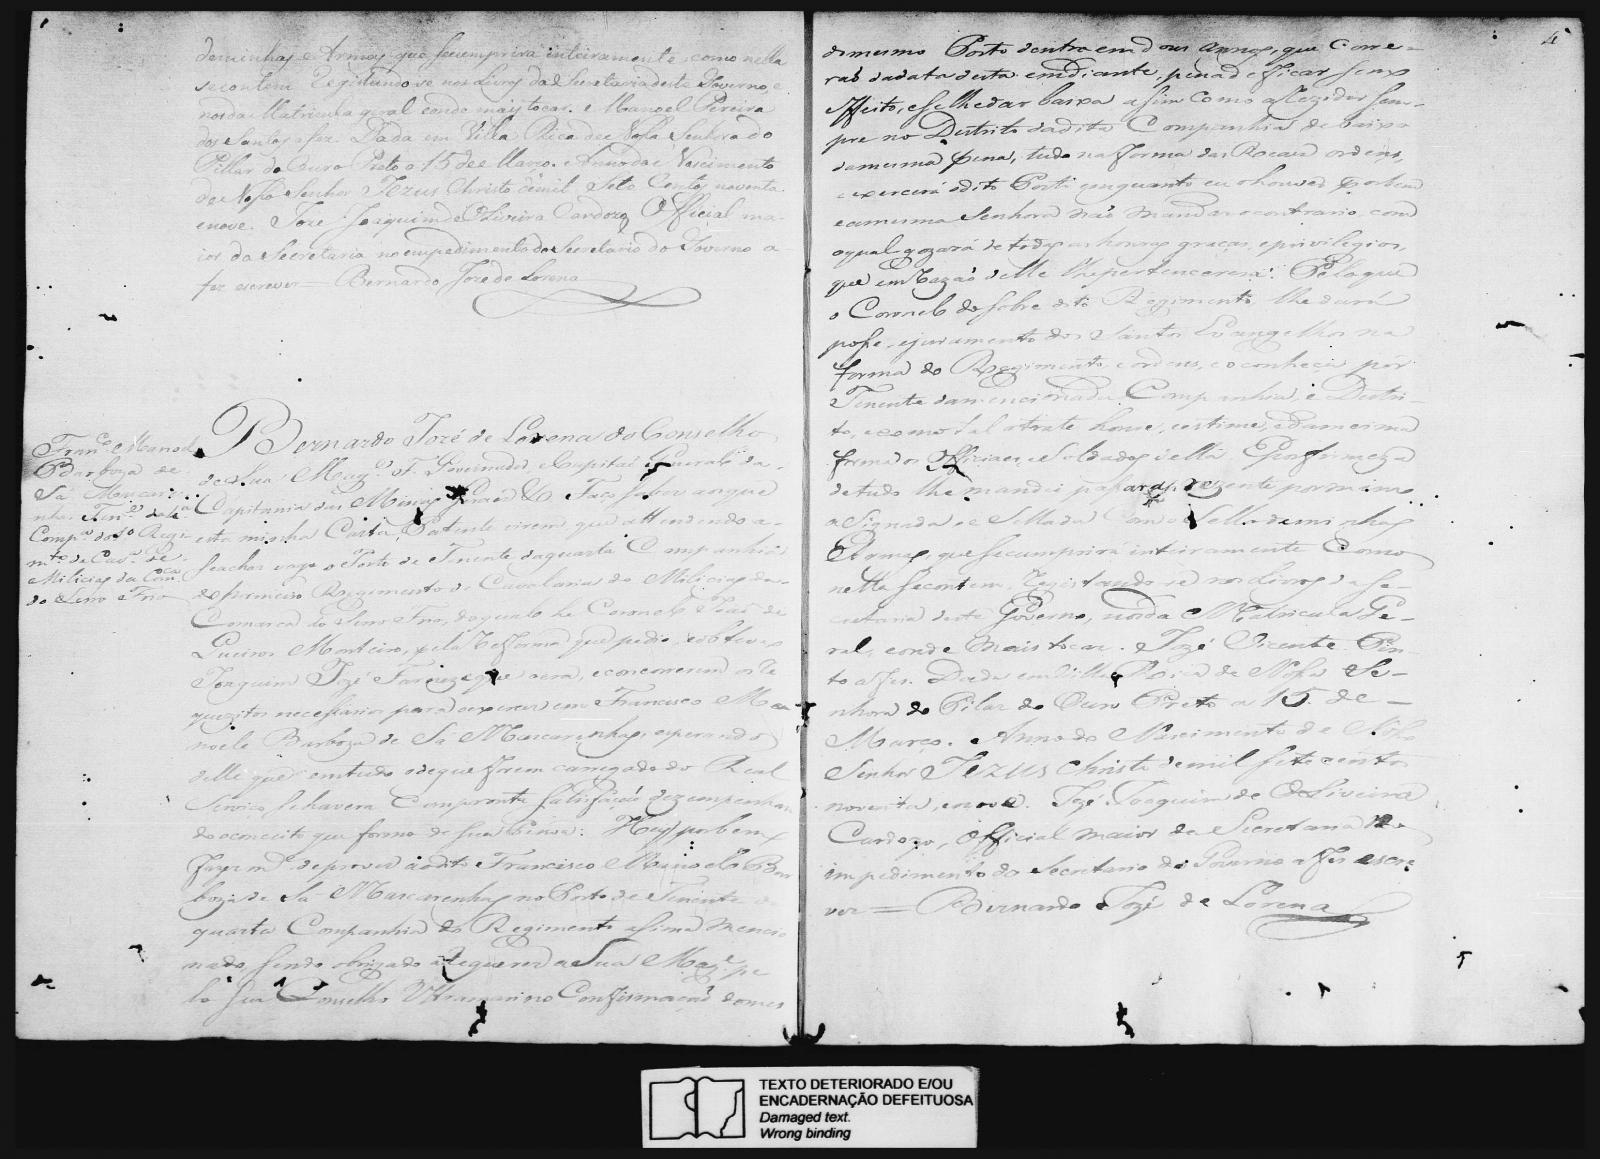 deminhas Armas que secumprirá inteiramente como nella
secontem Registando-se nos Livros da Secretaria deste Governo, e
nosda Matricula geral eonde mais tocar. e Manoel Pereira
dos Santos afez. Dada em Villa Rica de Nossa Senhora do
Pillar do Ouro Preto a 15 de Março. Anno do Nascimento
de Nosso Senhor Jezus Christo de mil Sete Centos noventa
enove. Joze Joaquim de Oliveira Cardozo Official ma-
ior da Secretaria no empedimento do Secretario do Governo a
fez escrever = Bernardo Joze de Lorena
Franco. Manoel
Barboza de
Sá Mascare-
nhas Tene. da 4a.
Compa. do 1o Regi-
mto. de Cava. de
Milicias da Comca.
do Serro Frio
Bernardo José de Lorena do Conselho
de Sua Mage. F. Governador, e Capitão General da
Capitania das Minas Geraes &c Faço saber aos que
esta minha Carta Patente virem, que attendendo a-
seachar vago o Posto de Tenente daquarta Companhia
do primeiro Regimento de Cavalaria de Milicias da
Comarca do Serro Frio, do qual he Coronel João de
Queiros Monteiro, pela Reforma que pedio, e obteve
Joaquim José que oera, e concorrerem os re
quezitos necessarios para o exercer em Francisco Ma
noel Barboza de Sá Mascarenhas, esperando
delle que em tudo o de que for em carregado do Real
Serviço se haverá Com pronta satisfação dezempenhan
do o conceito que formo de sua Pessoa: Hey por bem
fazer mce. de prover ao dito Francisco Manoel Bar
boza de Sá Mascarenhas no Posto de Tenente da
quarta Companhia do Regimento asima Mencio
nado, sendo obrigado a requerer a Sua Mage. pe
lo seu Conselho Ultramarino Confirmação domes
4
domesmo Posto dentro em dous annos, que Corre-
rão dadata desta emdiante, pena de ficar sem
effeito, e se lhe dar baixa asim como a Rezidir sem-
pre no Destrito dadita Companhia de baixo
damesma pena, tudo na forma das Reaes ordens,
e exercerá odito Posto emquanto eu o houver por bem
e amesma Senhora não Mandar o contrario, com
oqual gozará de todas as honras graças, e previlegios,
que em Razão delle lhe pertencerem: Pelo que
o Coronel do sobre dito Regimento lhe dará
posse, e juramento dos Santos Evangelhos na
forma do Regimento, e ordens, e o conheça por
Tenente damencionada Companhia, e Destri-
to, e como tal o trate honre, e estime, e damesma
forma os Officiaes, e Soldados della. E por firmeza
detudo lhe mandei passar a prezente por mim
aSignada e Sellada Com o Sello deminhas
Armas, que secumprirá inteiramente Como
nella secontem, Registando-se nos Livros da Se-
cretaria deste Governo, nosda Matricula Ge-
ral, e onde mais tocar. José Vicente Pin
to a fes. Dada em Villa Rica de Nossa Se-
nhora do Pilar do Ouro Preto a 15 de-
Março. Anno do Nascimento de Nosso
Senhor Jezus Christo de mil sete centos
noventa, e nove. José Joaquim de Oliveira
Cardozo, Official maior da Secretaria no
impedimento do Secretario do Governo a fes escre
ver = Bernardo José de Lorena
TEXTO DETERIORADO E/OU
ENCADERNAÇÃO DEFEITUOSA
Damaged text.
Wrong binding